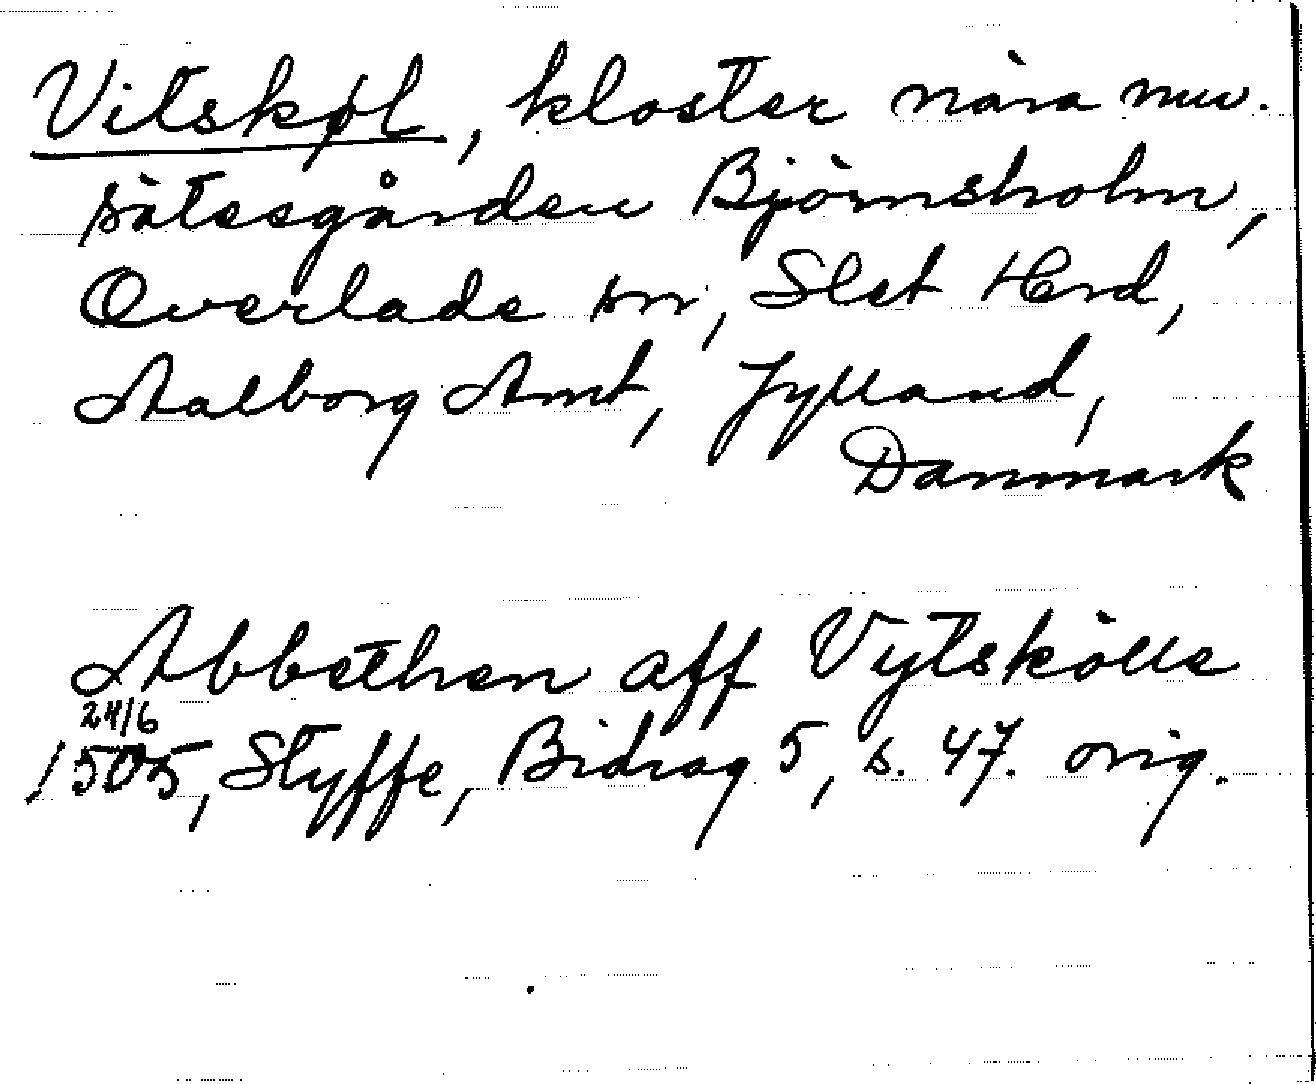 Vitskøl, kloster nära nuv.
sätesgården Björnsholm,
Overlade sn, Slet Hrd,
Aalborg Amt, Jylland,
Danmark
Abbethen aff Vytskölle
24/6
1505, Styffe, Bidrag 5, s. 47. orig.